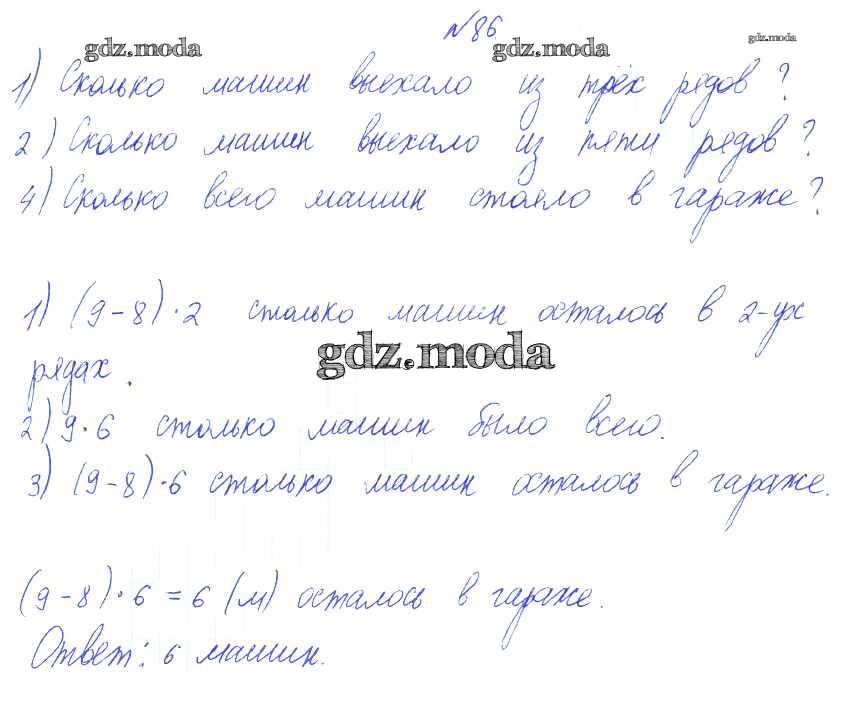 №86
gdz.moda gdz.moda gdz.moda
1) Сколько машин выехало из трёх рядов?
2) Сколько машин выехало из пяти рядов?
4) Сколько всего машин стояло в гараже?
1) (9-8)·2 столько машин осталось в 2-ух
gdz.moda
рядах.
2) 9·6 столько машин было всего.
3) (9-8)·6 столько машин осталось в гараже.
(9-8)·6=6 (м) осталось в гараже.
Ответ: 6 машин.